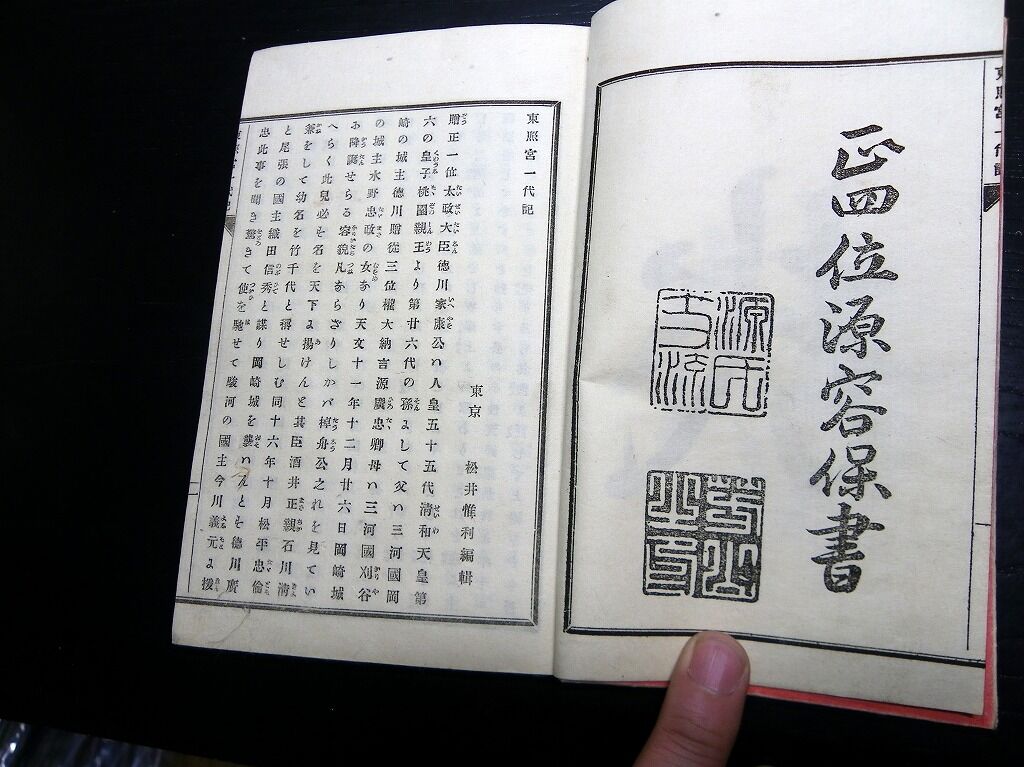 東照宮一代記
正四位源容保書
源氏
支流
東照宮一代記
東京　松井惟利編輯
贈正一位太政大臣徳川家康公ハ人皇五十五代清和天皇第
六の皇子桃園親王より第廿六代の孫よして父ハ三河國岡
崎の城主徳川贈從三位權大納言源廣忠卿母ハ三河國刈谷
の城主水野忠政の女あり天文十一年十二月廿六日岡崎城
お降誕せらる容貌凡あらざりしかバ棹舟公之れを見てい
へらく此兒必を名を天下よ揚けんと其臣酒井正親石川清
兼をして幼名を竹千代と稱せしむ同十六年十月松平忠倫
と尾張の國主織田信秀と謀り岡崎城を襲ハんとを徳川廣
忠此事を聞き驚きて使を馳せて駿河の國主今川義元よ援